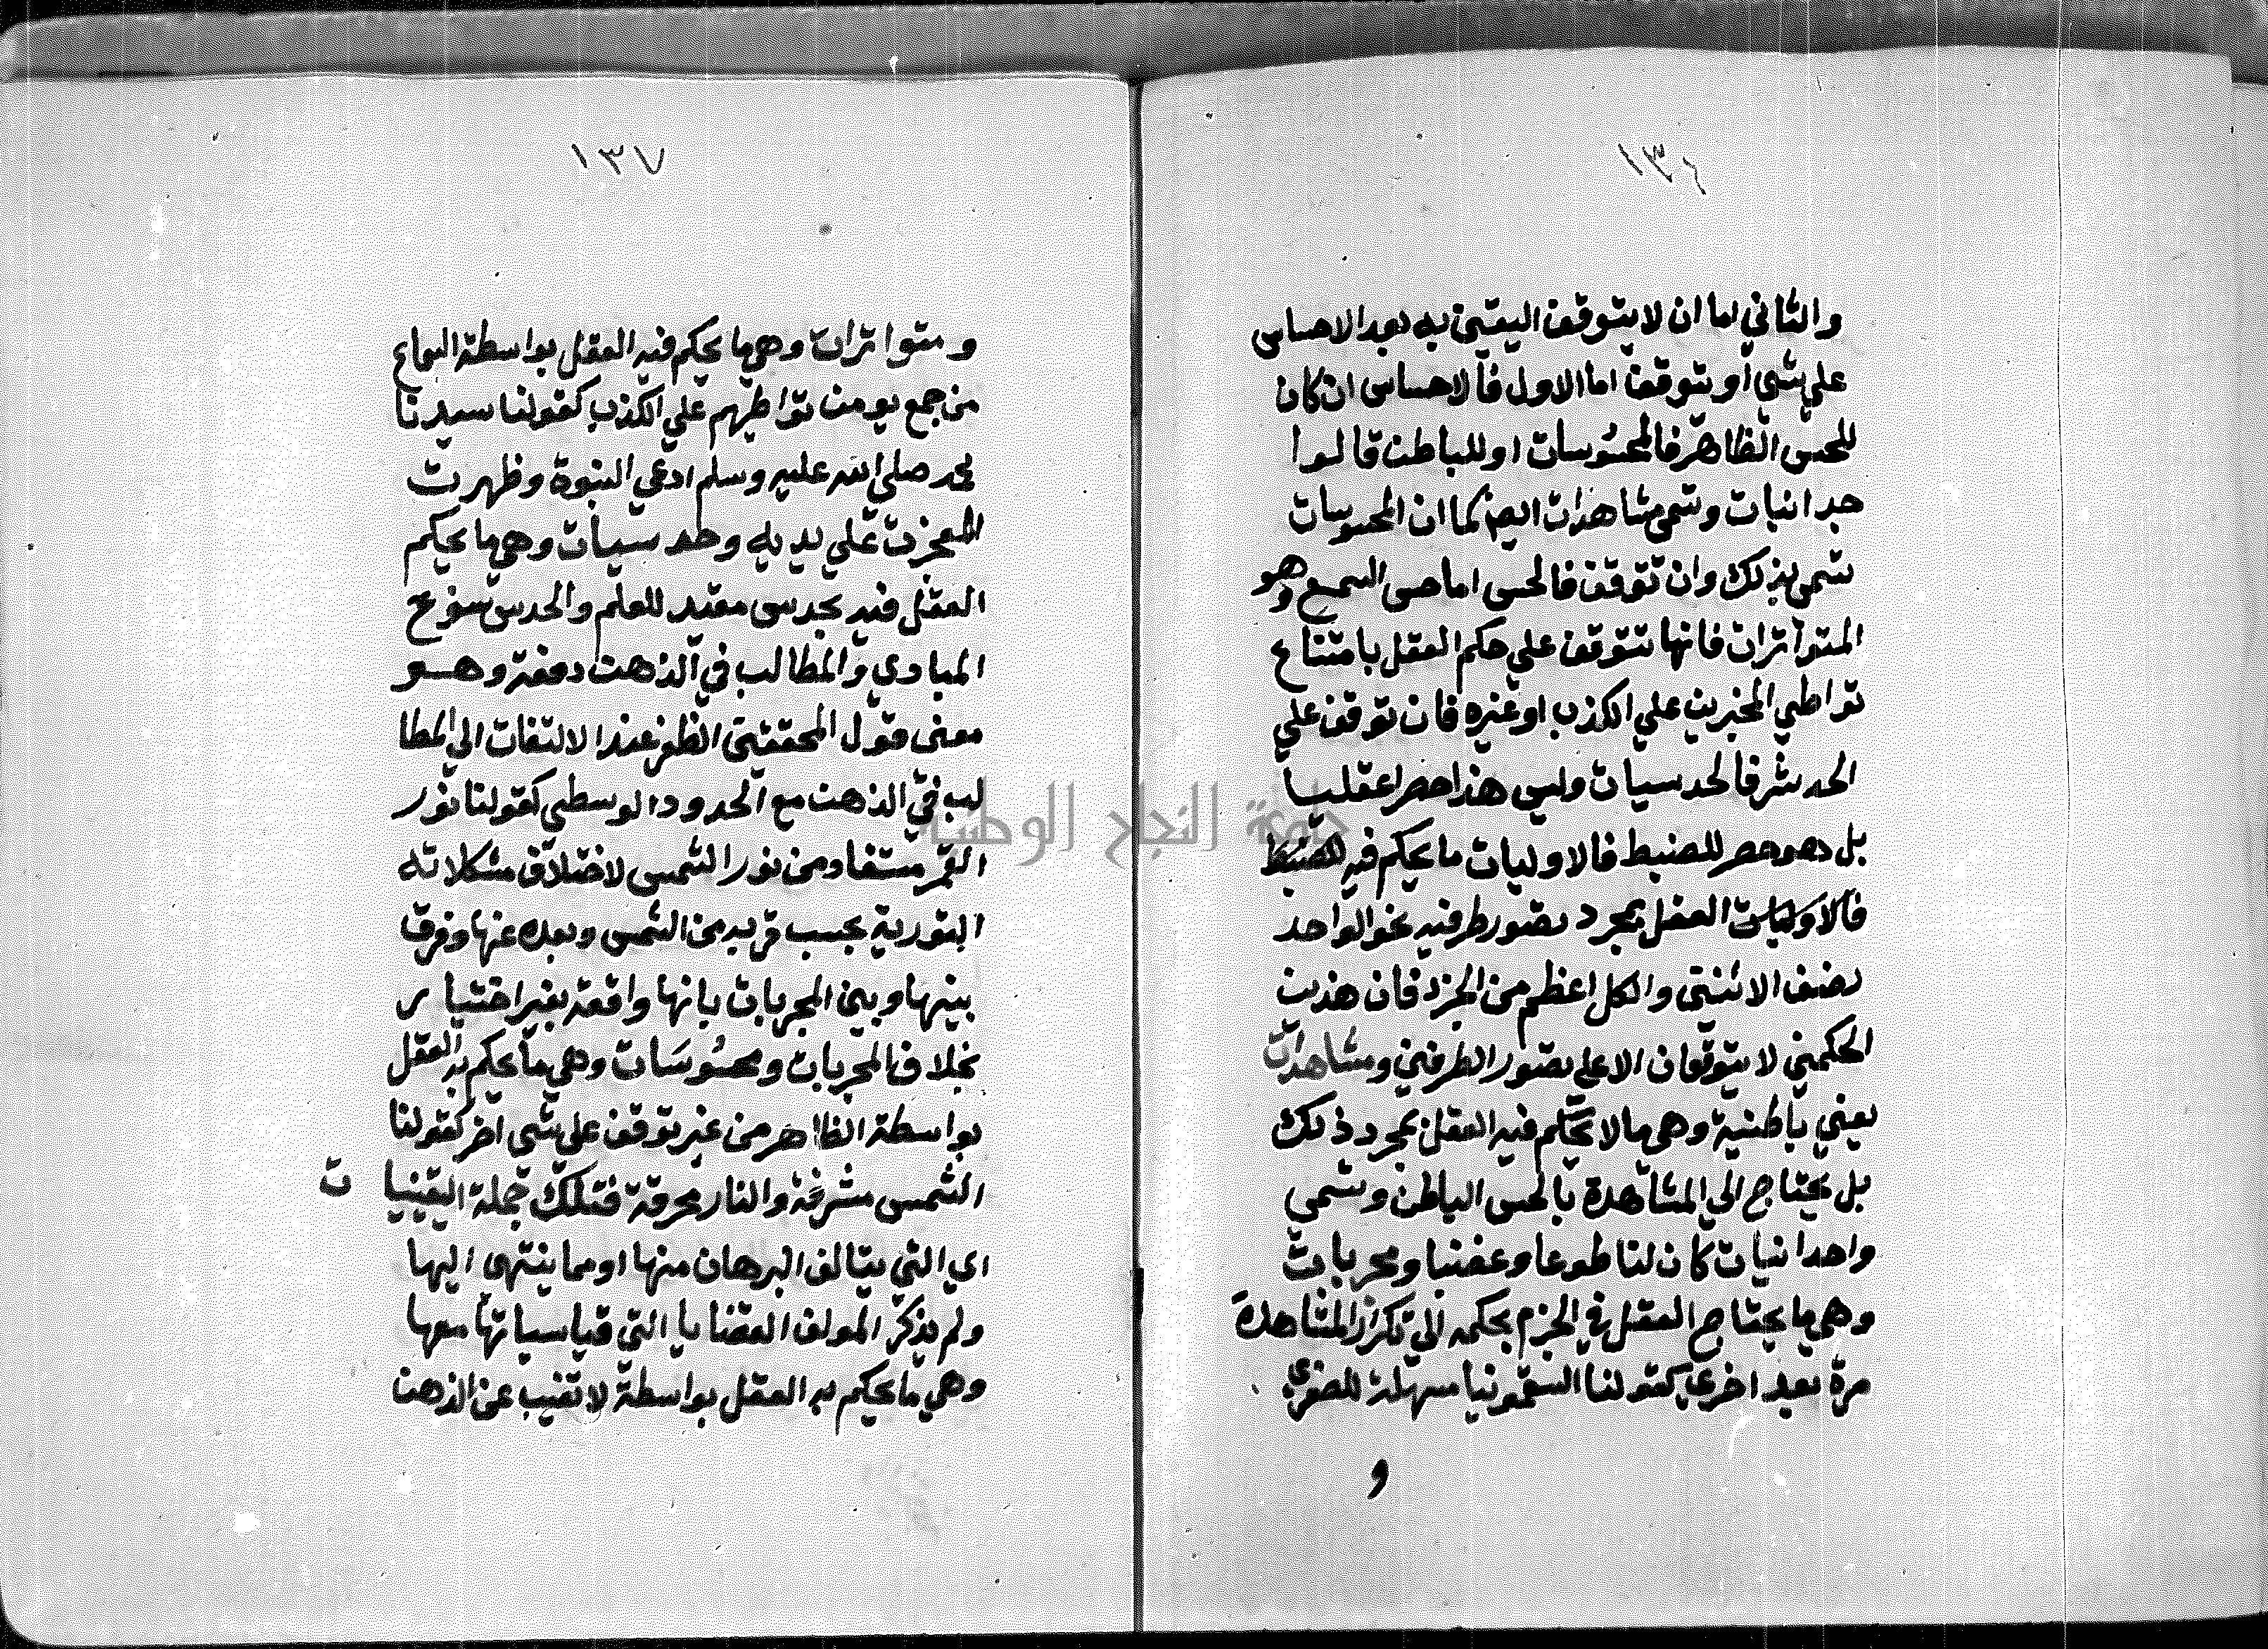 ١٣٦
والثاني اما ان لا يتوقف اليقين به بعد الاحساس
علي شي او يتوقف اما الاول فالاحساس ان كان
للحس الظاهر فالمحسوسات او للباطن قالوا
جدانيات وتسمي مشاهدات ايضا كما ان المحسوسات
تسمي بذلك وان توقف فالحس اما حس السمع وهو
المتواترات فانها تتوقف علي حكم العقل بامتناع
تواطي المخبرين علي الكذب او غيره فان توقف علي
الحدس فالحدسيات وليس هذا حصرا عقليا
بل هو حصر للضبط فالاوليات ما يحكم فيه للضبط
فالاوليات العقل بمجرد تصور طرفيه نحو الواحد
نصف الاثنين والكل اعظم من الجزء فان هذين
الحكمين لا يتوقفان الا علي تصور الطرفين ومشاهدات
يعني باطنية وهي ما لا يحكم فيه العقل بمجرد ذلك
بل يحتاج الي المشاهدة بالحس الباطن وتسمي
واحدانيات كان لنا طوعا وغضبا ومجربات
وهي ما يحتاج العقل في الجزم بحكمه الي تكرار المشاهدة
مرة بعد اخري كقولنا السقمونيا مسهلة للصفري
و
١٣٧
ومتواترات وهي ما يحكم فيه العقل بواسطة السماع
من جمع يومن تواطيهم علي الكذب كقولنا سيدنا
محمد صلي الله عليه وسلم ادعي النبوة وظهرت
المعجزت علي يديه وحدسيات وهي ما يحكم
العقل فيه بحدس مفيد للعلم والحدس سنوح
المبادي والمطالب في الذهن دفعة وهو
معني قول المحققين الظفر عند الالتفات الي المطا
لب في الذهن مع الحدود الوسطي كقولنا نور
القمر مستفاد من نور الشمس لاختلاف مشكلاته
النورية بحسب قربه من الشمس وبعده عنها وفرق
بينها وبين المجربات بانها واقعة بغير اختيار
بخلاف المجربات ومحسوسات وهي ما يحكم به العقل
بواسطة الظاهر من غير توقف علي شي اخر كقولنا
الشمس مشرقة والنار محرقة فتلك جملة اليقينيات
اي التي يتالف البرهان منها او مما ينتهي اليها
ولم يذكر المولف القضايا التي قياسياتها معها
وهي ما يحكم به العقل بواسطة لا تغيب عن الذهن
جامعة النجاح الوطنية